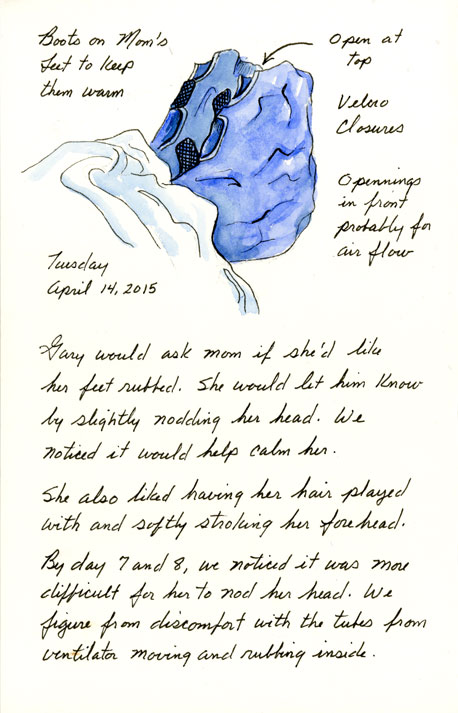 Boots on Mom's
feet to keep
them warm
Open at
top
Velcro
Closures
Opennings
in front
probably for
air flow
Tuesday
April 14, 2015
Gary would ask mom if she'd like
her feet rubbed. She would let him know
by slightly nodding her head. We
noticed it would help calm her.
She also liked having her hair played
with and softly stroking her forehead.
By day 7 and 8, we noticed it was more
difficult for her to nod her head. We
figure from discomfort with the tubes from
ventilator moving and rubbing inside.